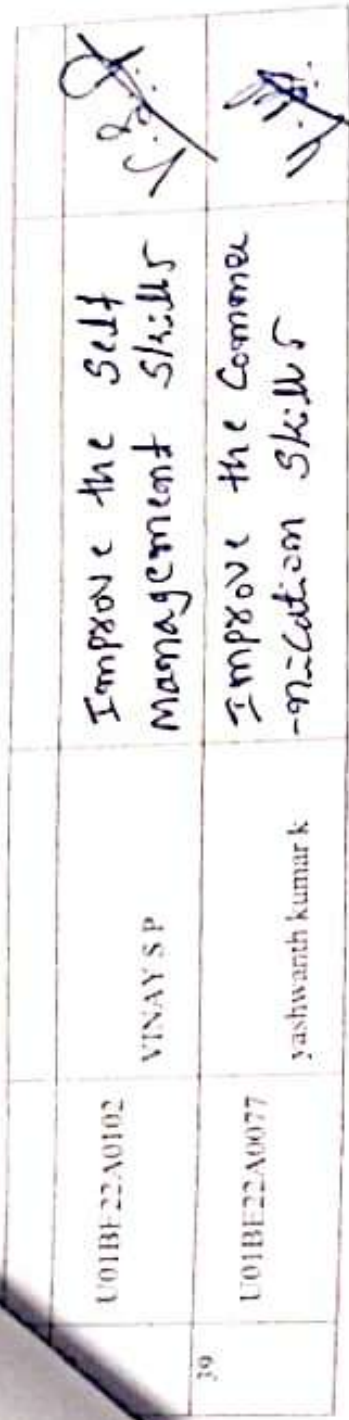 U01BE22A0102 VINAY S P Improve the Self
Management Skills
39 U01BE22A0077 yashwanth kumar k Improve the Commu
-nication Skills